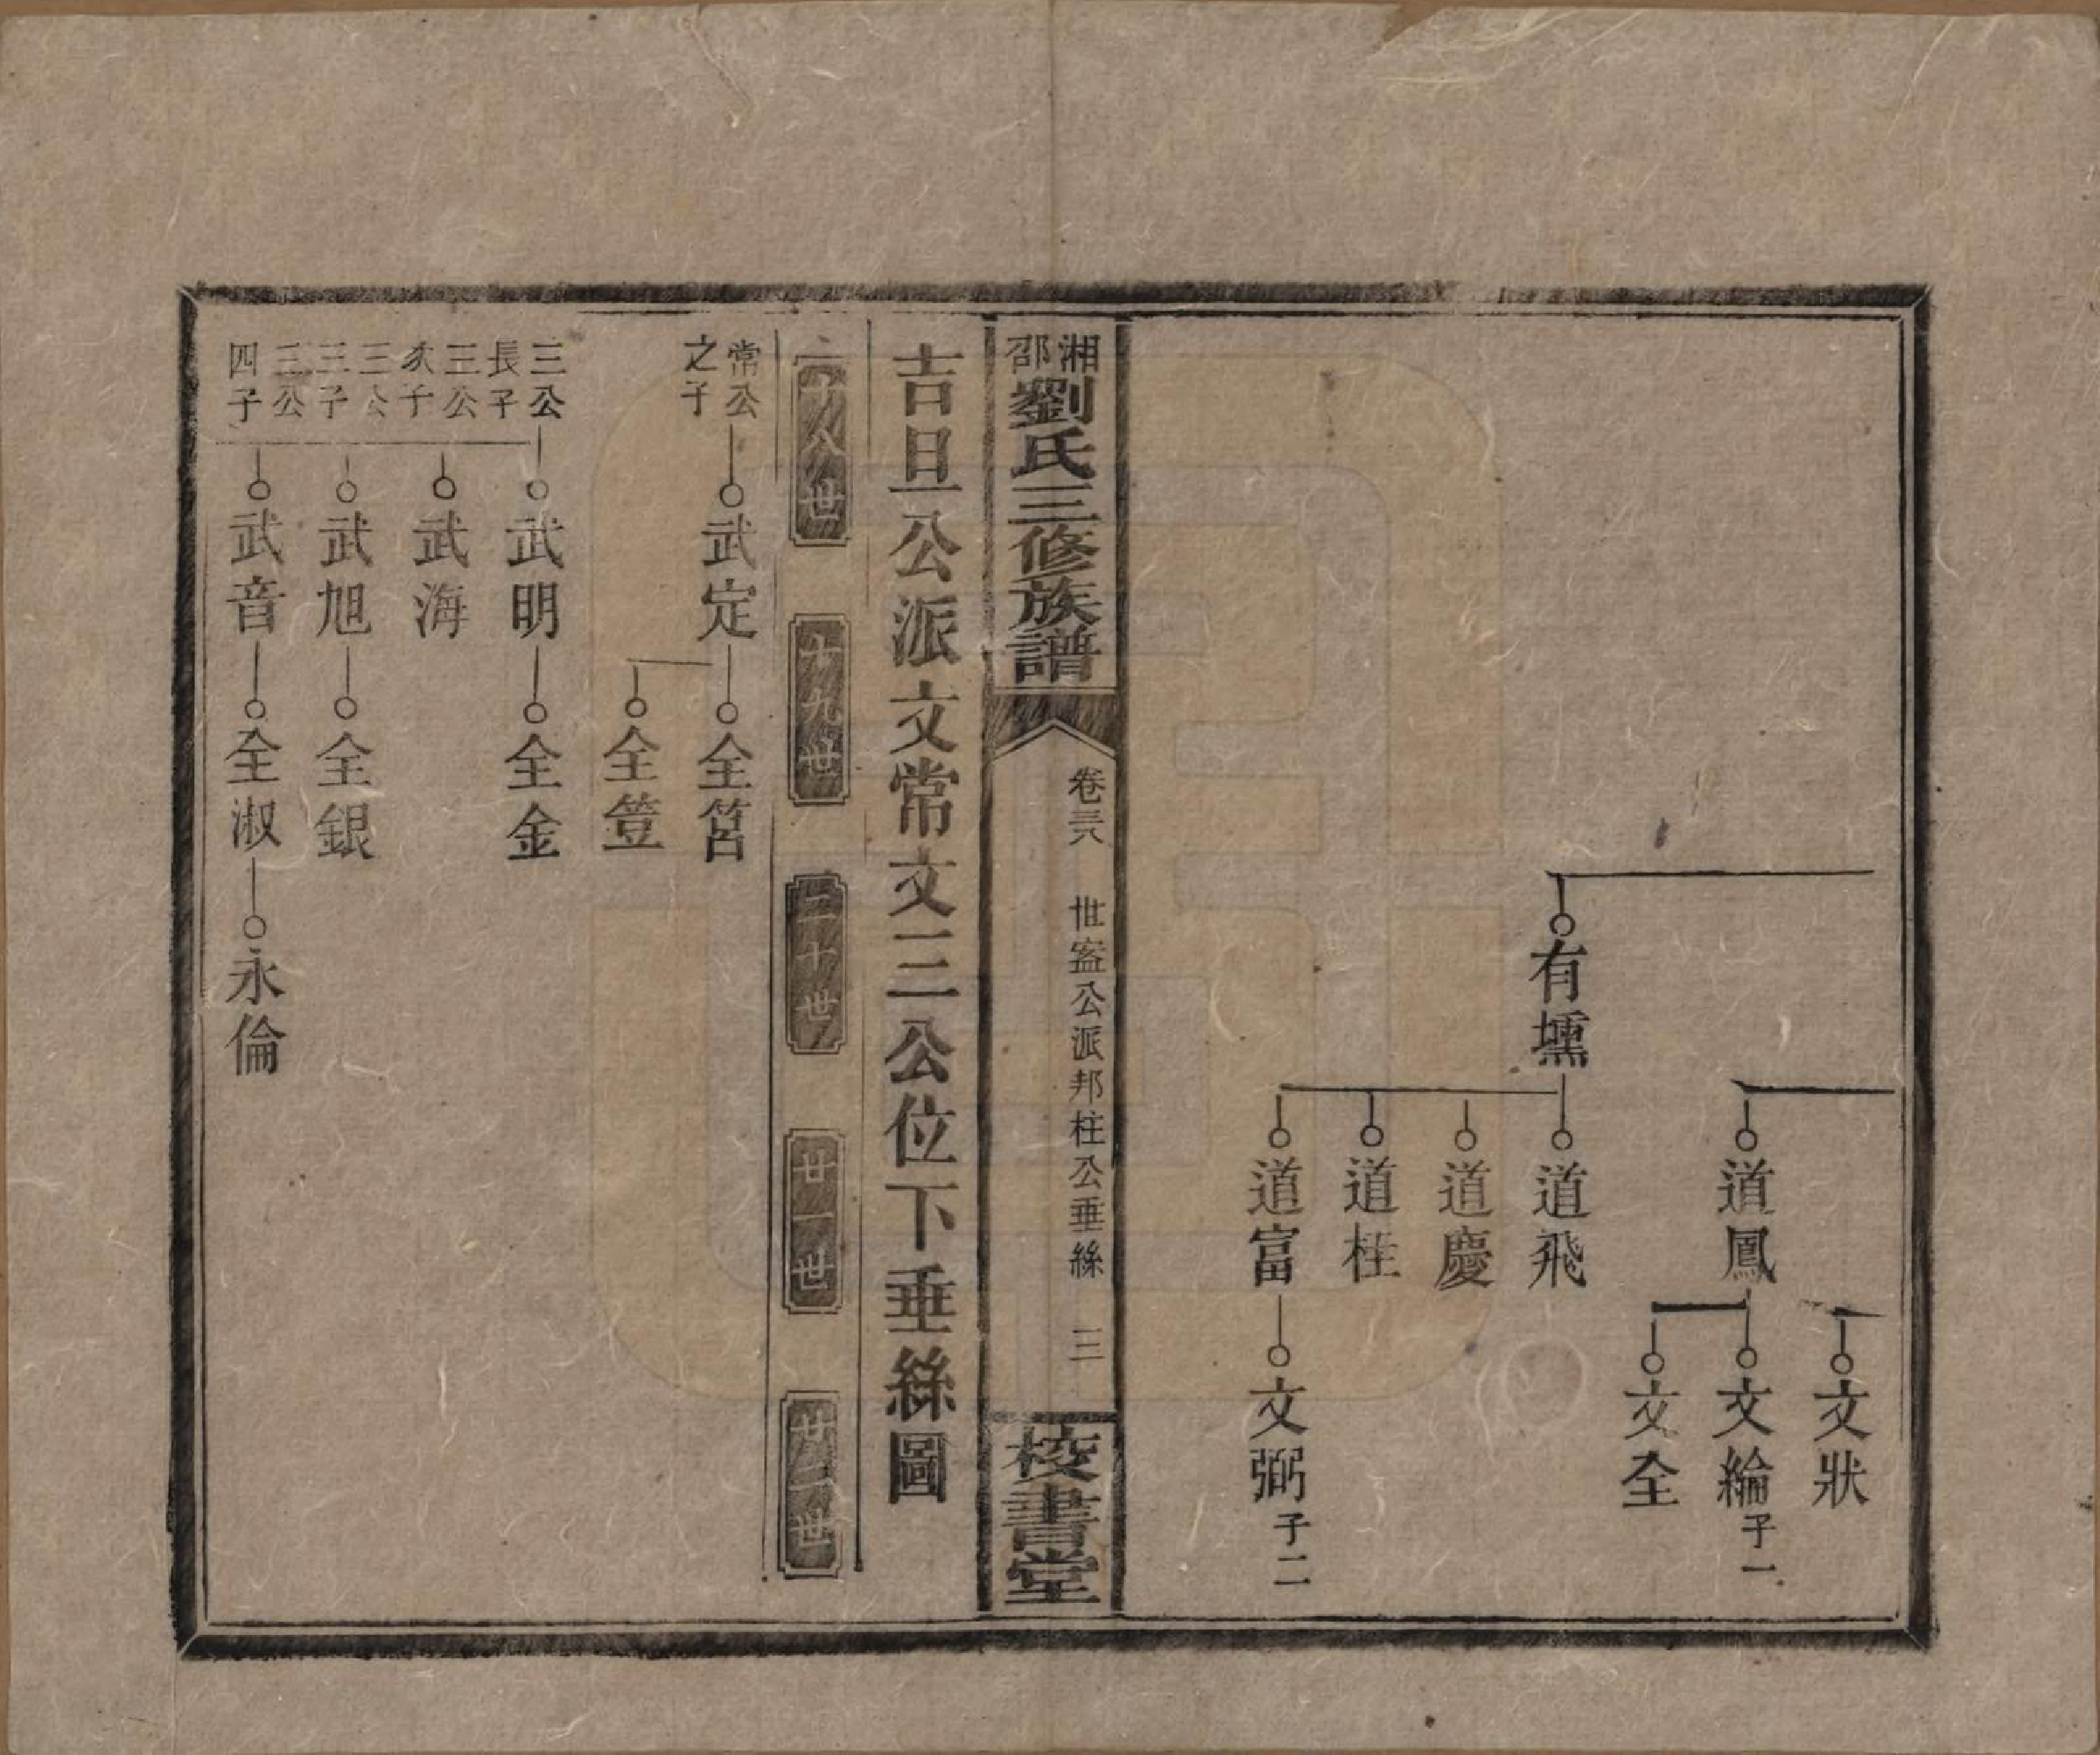 文狀
道鳳
文綸 子一
文全
有壎
道飛
道慶
道柱
道富
文弼 子二
湘邵劉氏三修族譜
卷三六
世盗公派邦柱公垂絲
三
校書堂
吉旦公派文常文三公位下垂絲圖
十八世
十九世
二十世
廿一世
廿二世
常公之子
武定
全筥
全簦
三公長子
武明
全金
三公次子
武海
三公三子
武旭
全銀
三公四子
武音
全淑
永倫